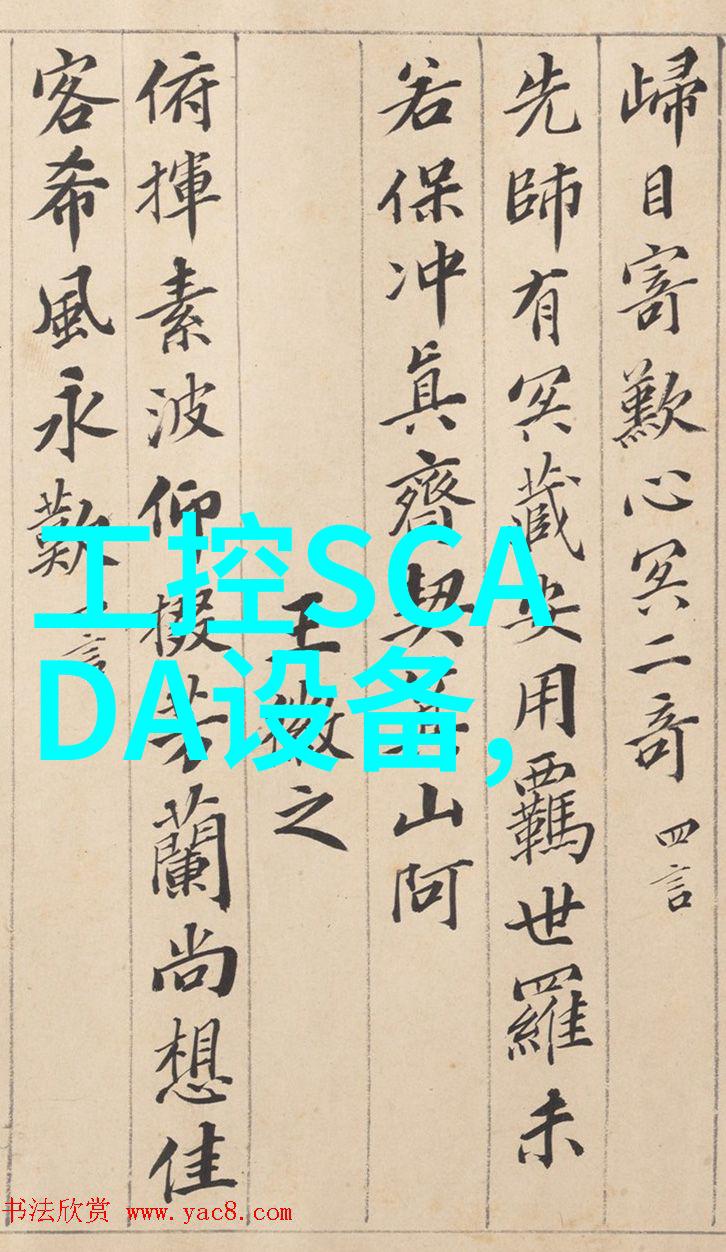 歸目寄歎心冥二奇 四言
先師有冥藏安用羈世羅未
若保冲眞齊契山阿
王徽之
俯揮素波仰掇芳蘭尚想佳
客希風永歎 言
工控SCA
DA设备,
书法欣赏 www.yac8.com